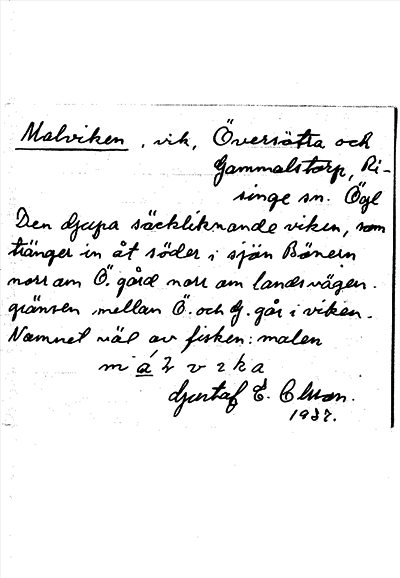 Malviken, vik, Översätra och
Gammalstorp, Ri-
singe sn. Ögl
Den djupa säckliknande viken, som
tränger in åt söder i sjön Bönern
norr om Ö. gård norr om landsvägen.
gränsen mellan Ö. och G. går i viken.
Namnet väl av fisken: malen
Gustaf E. Olsson.
1937.